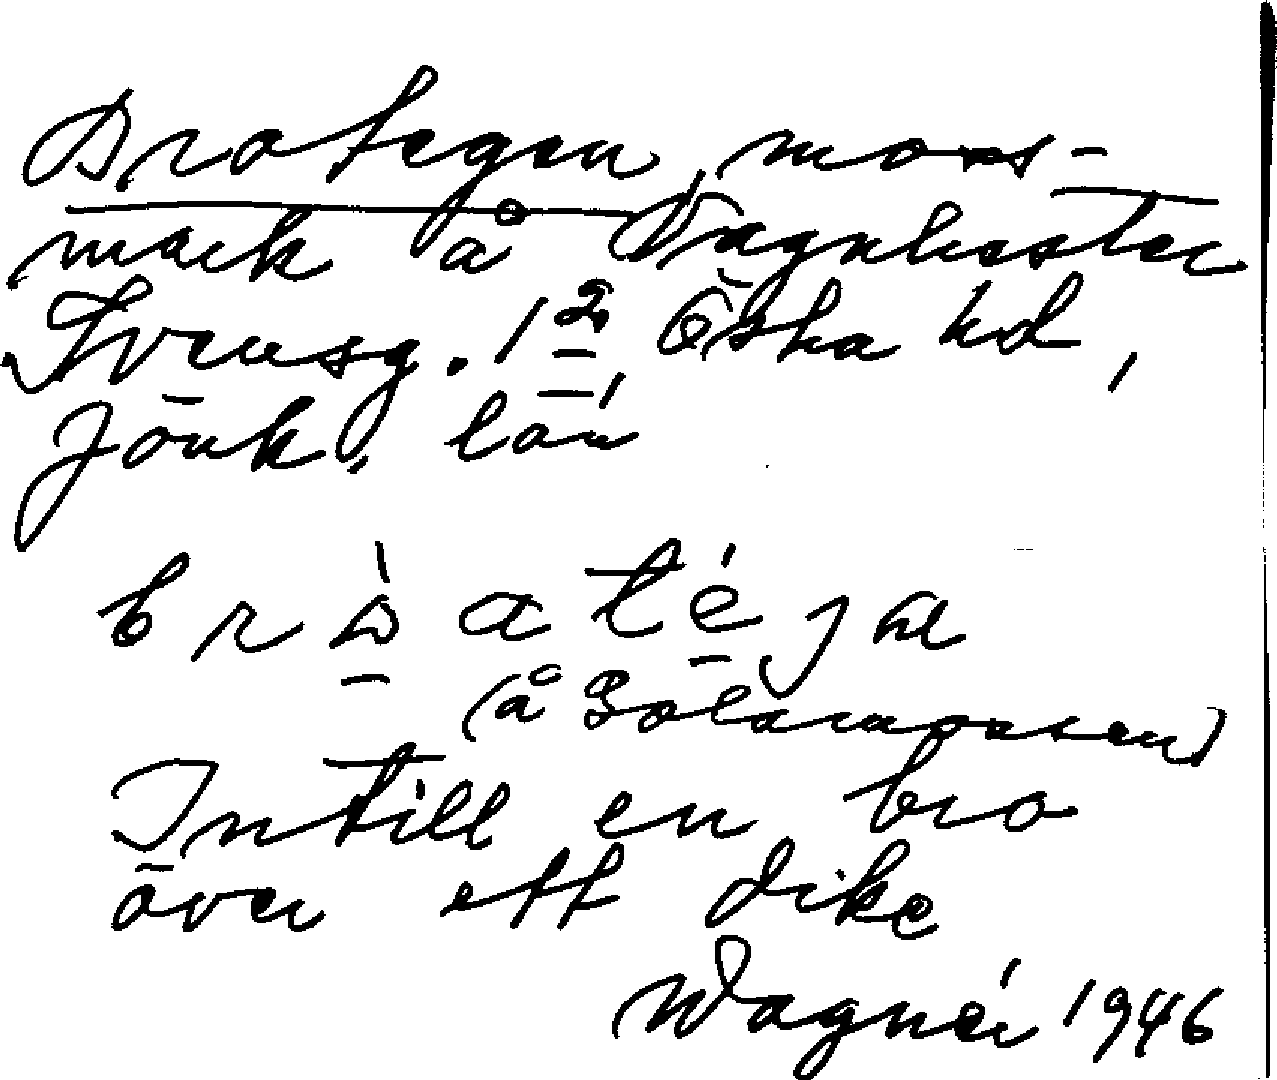 Brotegen, moss-
mark å Vagnhester
Svensg. 1², Östra hd,
Jönk. län
bròatéja
(å Bolamossen)
Intill en bro
över ett dike
Wagnér 1946